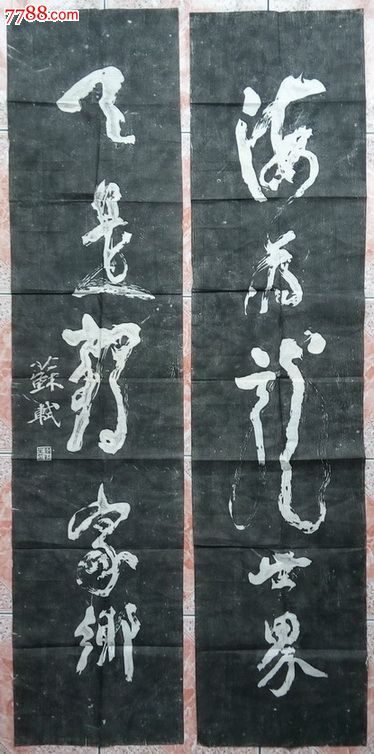 7788.com
海為龍世界
天是鶴家鄉
蘇軾